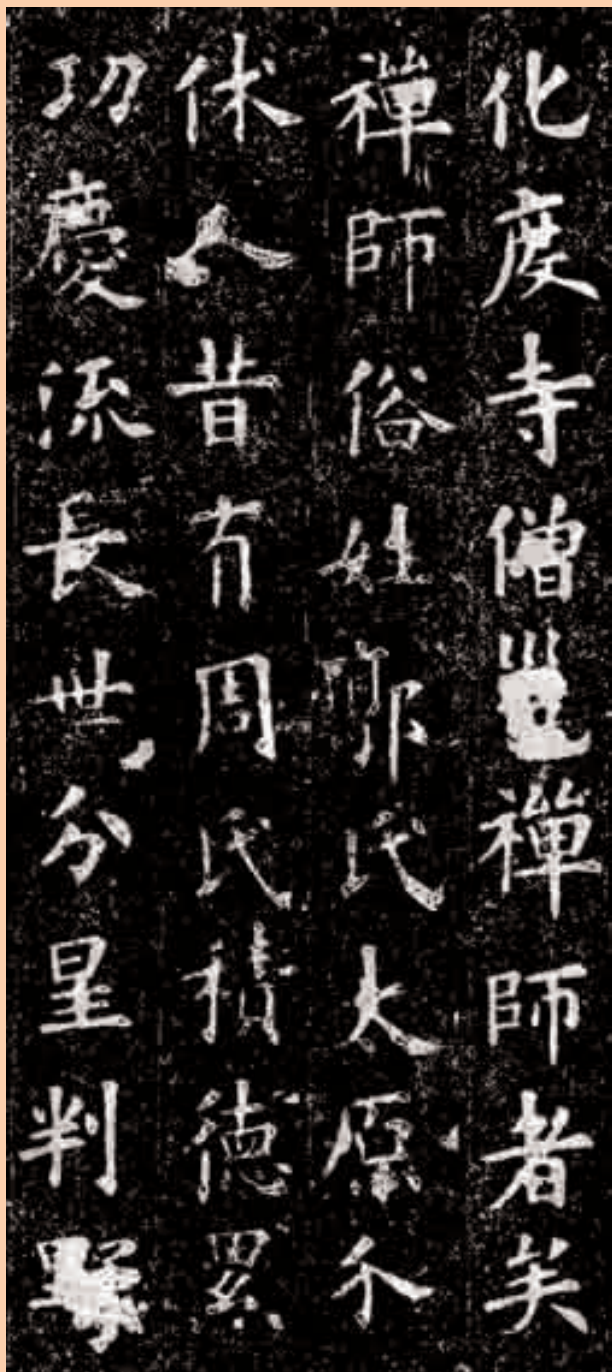 化度寺僧邕禪師者矣
禪師俗姓郭氏太原介
休人昔有周氏積德累
功慶流長世分星判野